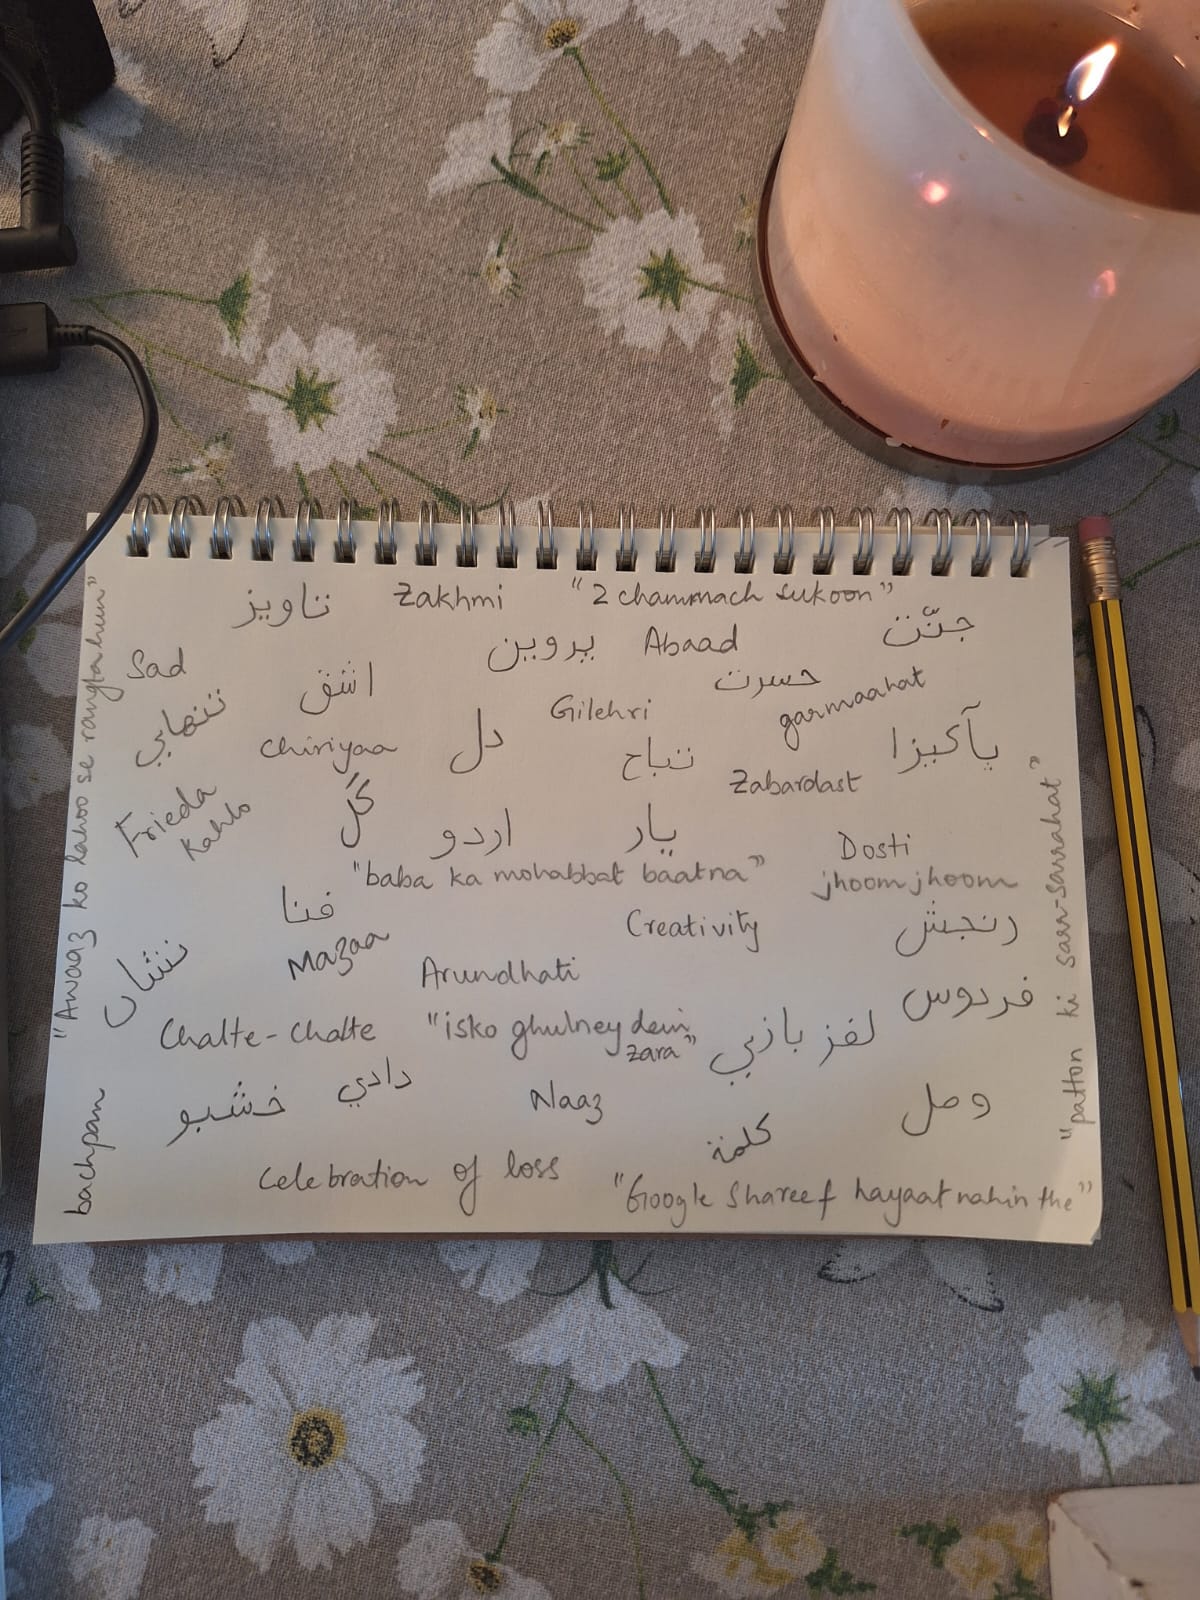 تاويز
Zakhmi
"2 chammach sukoon"
جنّت
Sad
اشق
پروين
Abaad
حسرت
garmaahat
تنهايي
Chiriyaa
دل
Gilehri
تباح
Zabardast
پآكيزا
Frieda
Kahlo
گل
اردو
يار
Dosti
"baba ka mohabbat baatna"
jhoom jhoom
فنا
Mazaa
Creativity
رنجش
نشاں
Arundhati
فردوس
Chalte-Chalte
"isko ghulney dein
zara"
لفز بازي
خشبو
دادي
Naaz
كلمة
وصل
Celebration of loss
"Google Shareef hayaat nahin the"
"Awaaz ko lahoo se rangta hun"
bachpan
"patton ki sarr-sarrahat"